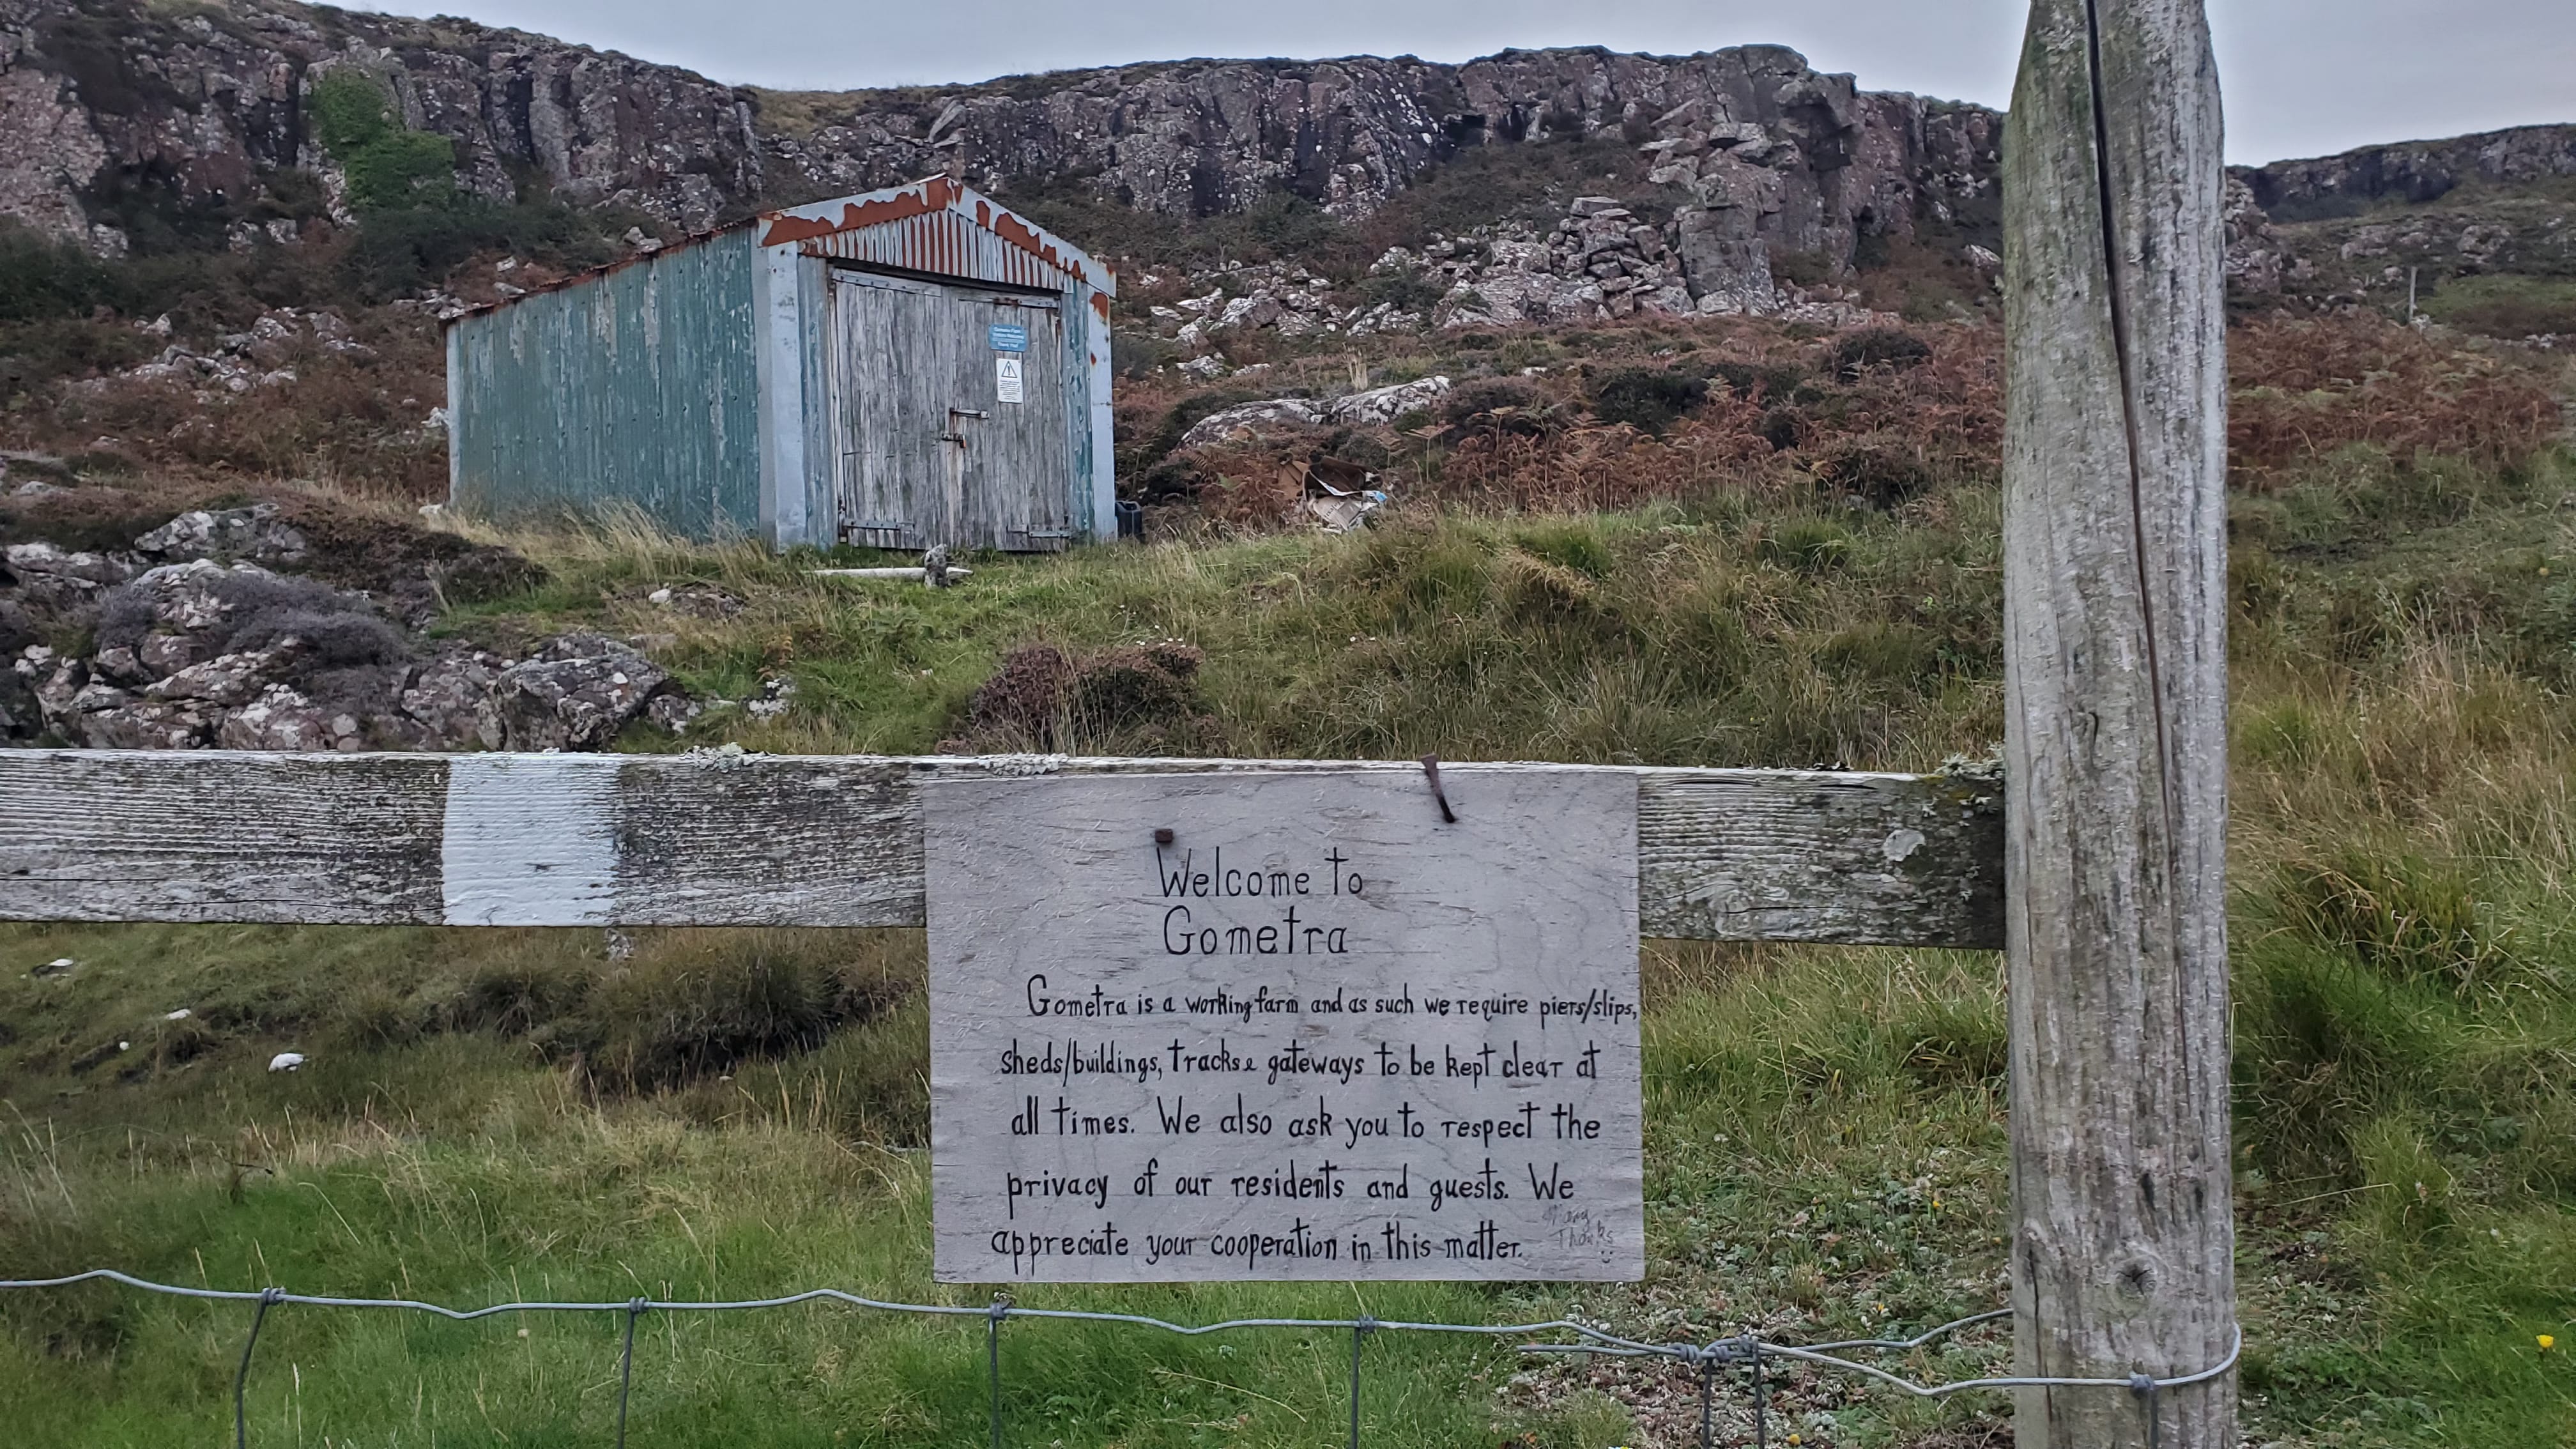 Welcome to
Gometra
Gometra is a working farm and as such we require piers/slips,
sheds/buildings, tracks & gateways to be kept clear at
all times. We also ask you to respect the
privacy of our residents and guests. We
appreciate your cooperation in this matter.
Many
Thanks